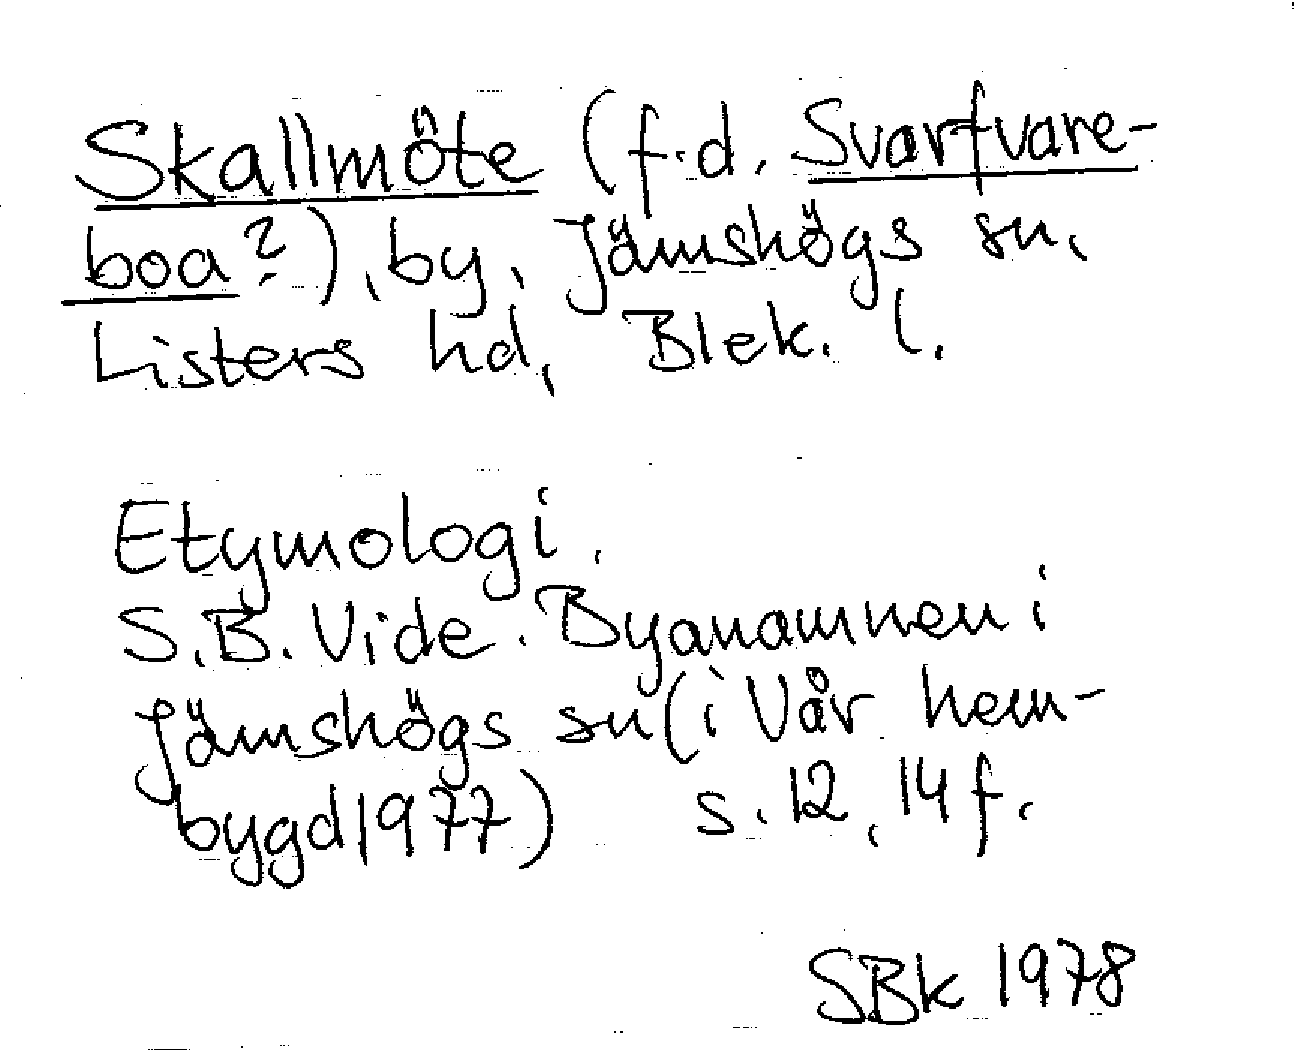 Skallmöte (f.d. Svartvare-
boa?), by, Jämshögs sn,
Listers hd, Blek. l.
Etymologi.
S.B. Vide. Byanamnen i
Jämshögs sn (i Vår hem-
bygd 1977) s. 12, 14 f.
SBk 1978